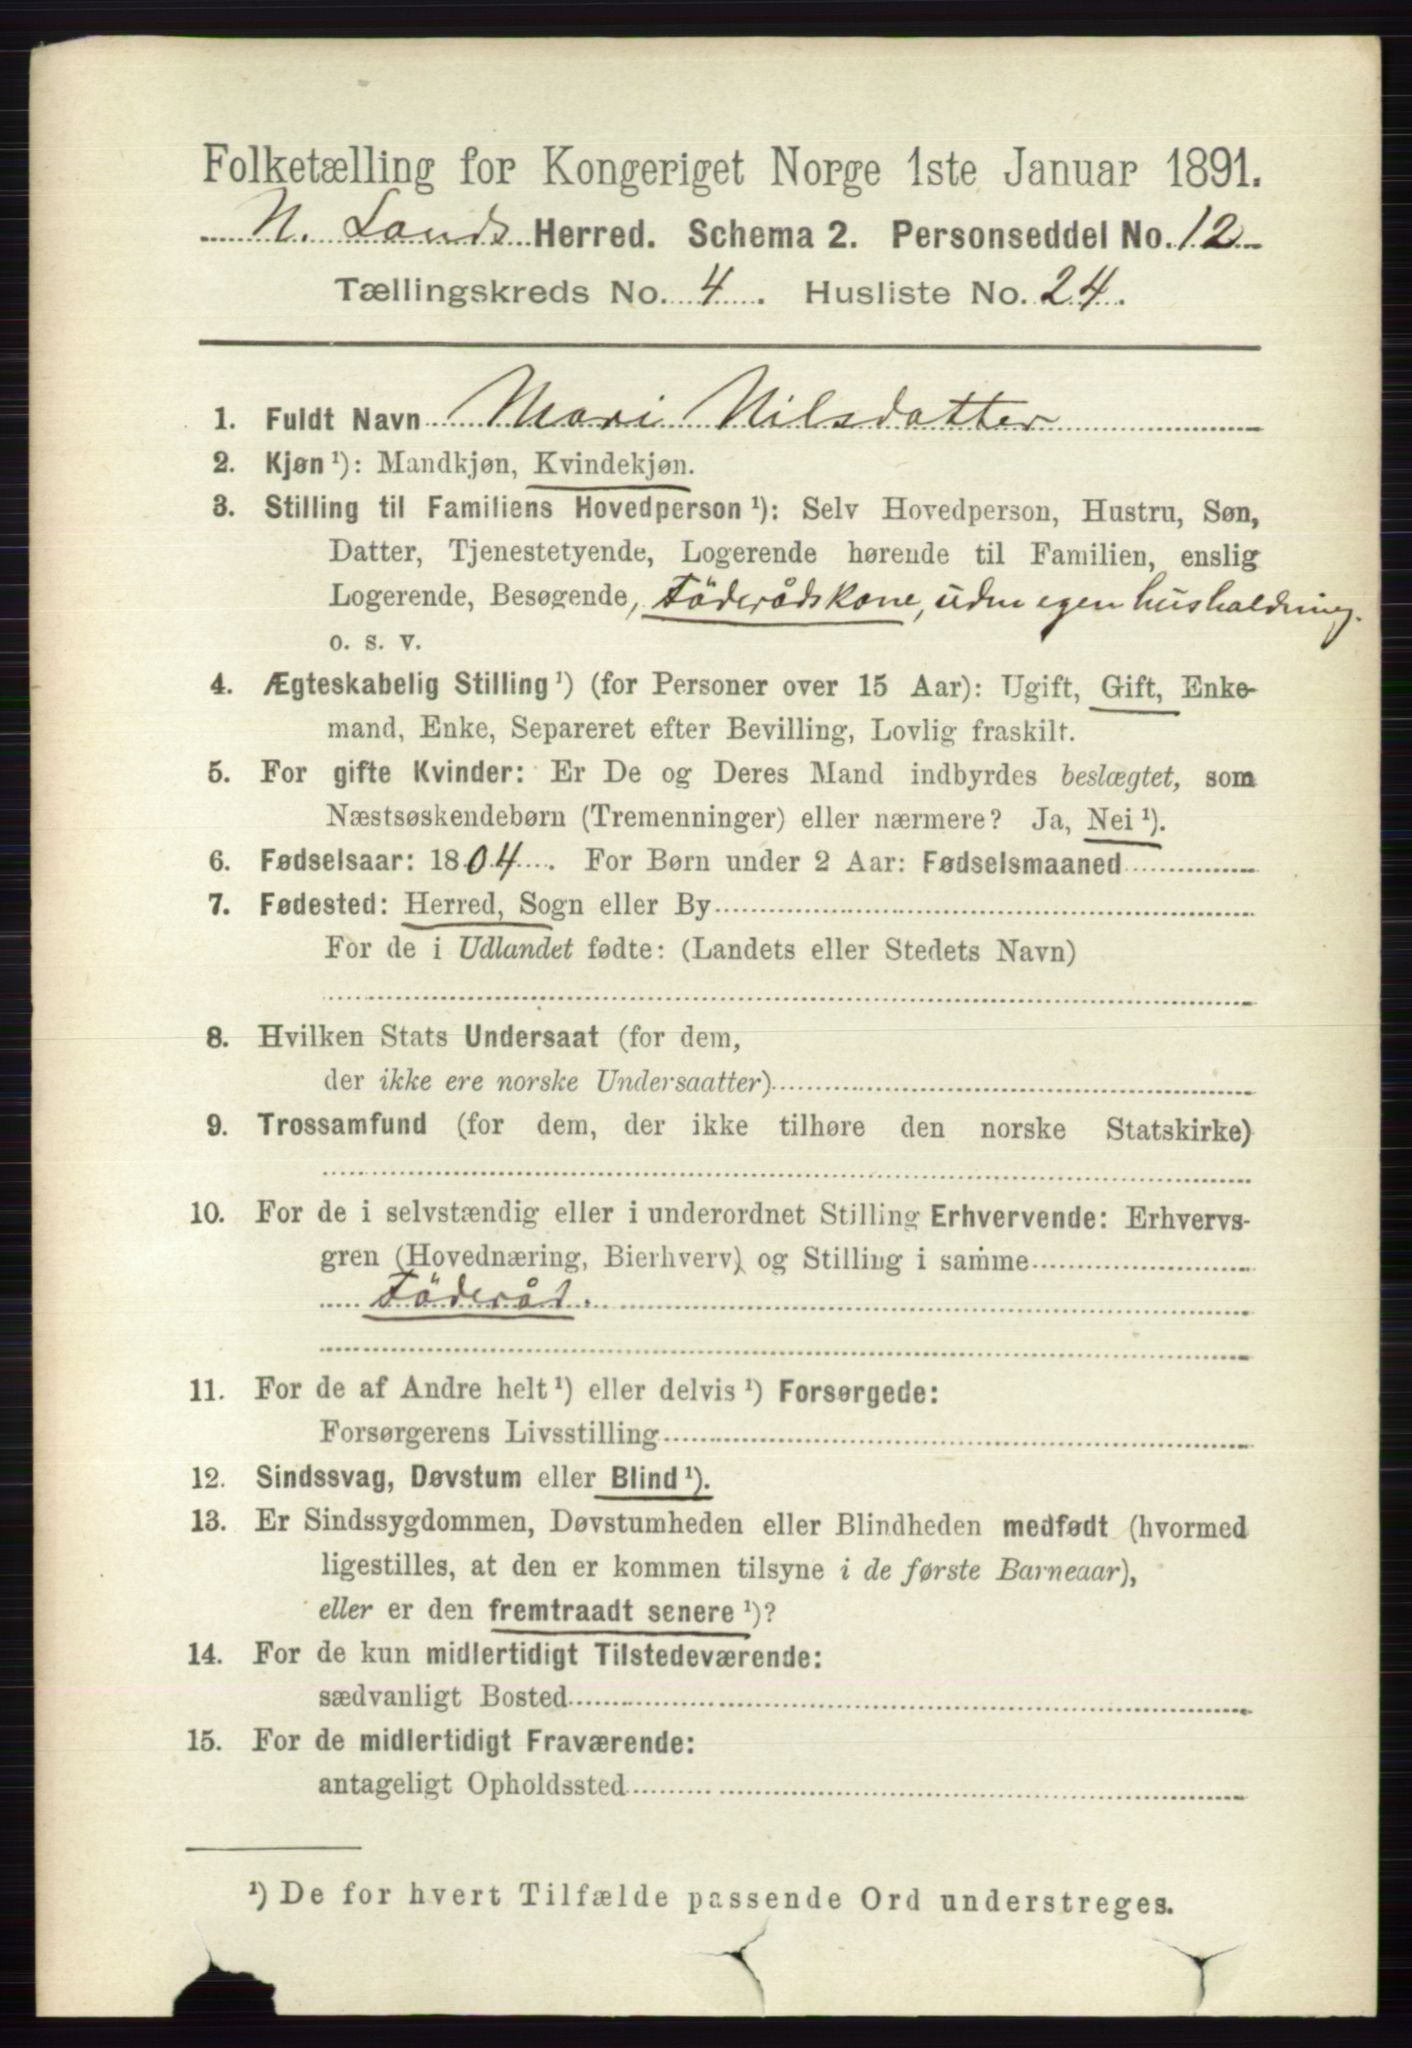 Folketælling for Kongeriget Norge 1ste Januar 1891.
N. Lands Herred. Schema 2. Personseddel No. 12
Tællingskreds No. 4. Husliste No. 24.
1. Fuldt Navn Mari Nilsdatter
2. Kjøn ¹): Mandkjøn, Kvindekjøn.
3. Stilling til Familiens Hovedperson ¹): Selv Hovedperson, Hustru, Søn,
Datter, Tjenestetyende, Logerende hørende til Familien, enslig
Logerende, Besøgende, Föderådskone, uden egen husholdning.
o. s. v.
4. Ægteskabelig Stilling ¹) (for Personer over 15 Aar): Ugift, Gift, Enke-
mand, Enke, Separeret efter Bevilling, Lovlig fraskilt.
5. For gifte Kvinder: Er De og Deres Mand indbyrdes beslægtet, som
Næstsøskendebørn (Tremenninger) eller nærmere? Ja, Nei ¹).
6. Fødselsaar: 1804. For Børn under 2 Aar: Fødselsmaaned
7. Fødested: Herred, Sogn eller By
For de i Udlandet fødte: (Landets eller Stedets Navn)
8. Hvilken Stats Undersaat (for dem,
der ikke ere norske Undersaatter)
9. Trossamfund (for dem, der ikke tilhøre den norske Statskirke)
10. For de i selvstændig eller i underordnet Stilling Erhvervende: Erhvervs-
gren (Hovednæring, Bierhverv) og Stilling i samme
Föderåd.
11. For de af Andre helt ¹) eller delvis ¹) Forsørgede:
Forsørgerens Livsstilling
12. Sindssvag, Døvstum eller Blind ¹).
13. Er Sindssygdommen, Døvstumheden eller Blindheden medfødt (hvormed
ligestilles, at den er kommen tilsyne i de første Barneaar),
eller er den fremtraadt senere ¹)?
14. For de kun midlertidigt Tilstedeværende:
sædvanligt Bosted
15. For de midlertidigt Fraværende:
antageligt Opholdssted
¹) De for hvert Tilfælde passende Ord understreges.